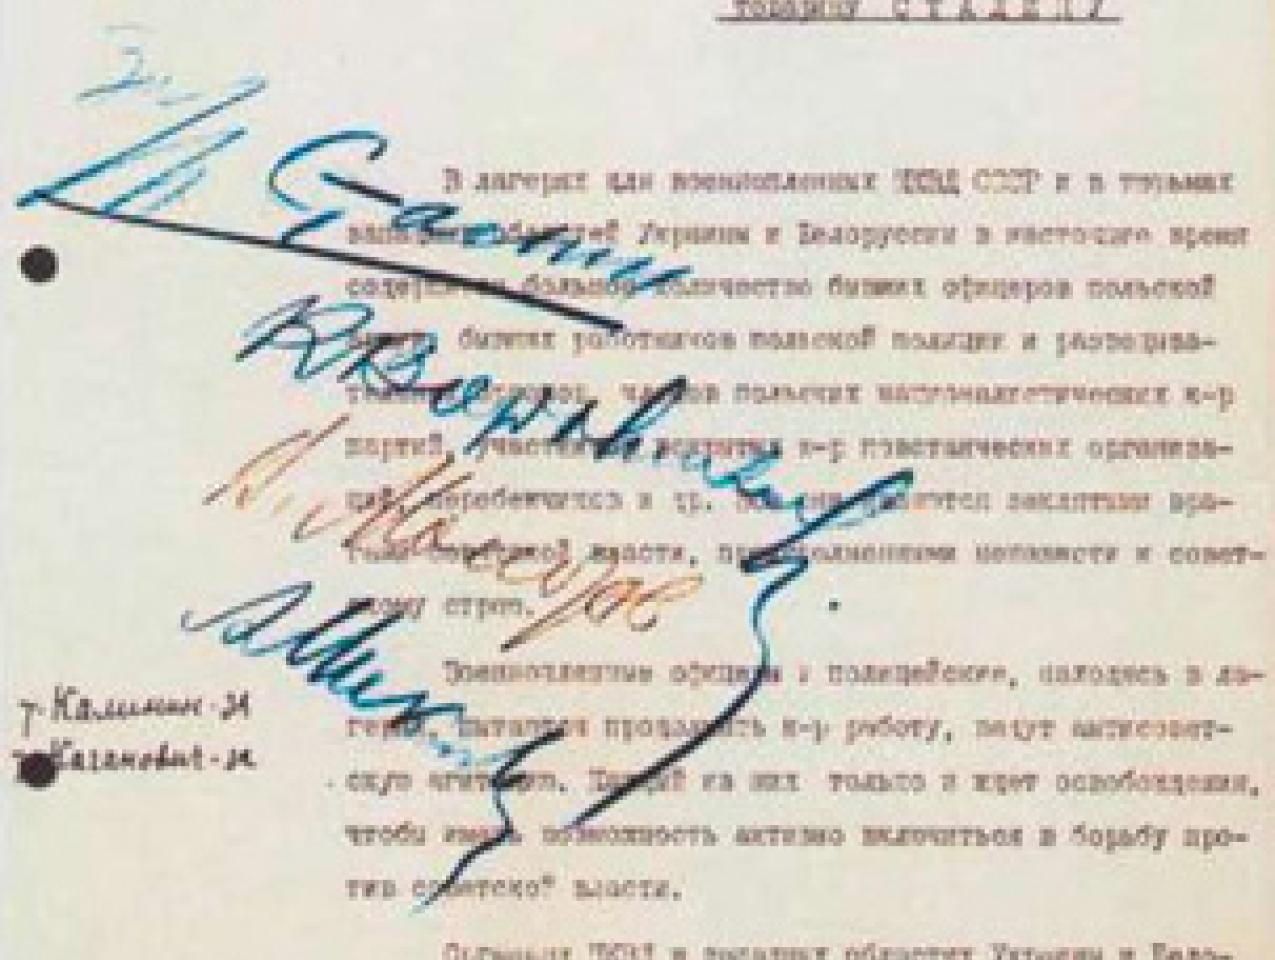 товарищу СТАЛИНУ
За
И Сталин
В лагерях для военнопленных НКВД СССР и в тюрьмах
западных областей Украины и Белоруссии в настоящее время
содержится большое количество бывших офицеров польской
армии, бывших работников польской полиции и разведыва-
тельных органов, членов польских националистических к-р
партий, участников вскрытых к-р повстанческих организа-
ций, перебежчиков и др. Все они являются заклятыми вра-
гами советской власти, преисполненными ненависти к совет-
скому строю.
К Ворошилов
В. Молотов
А Микоян
Военнопленные офицеры и полицейские, находясь в ла-
т. Калинин - за
герях, пытаются продолжать к-р работу, ведут антисовет-
т. Каганович - за
скую агитацию. Каждый из них только и ждет освобождения,
чтобы иметь возможность активно включиться в борьбу про-
тив советской власти.
Органами НКВД в западных областях Украины и Бело-